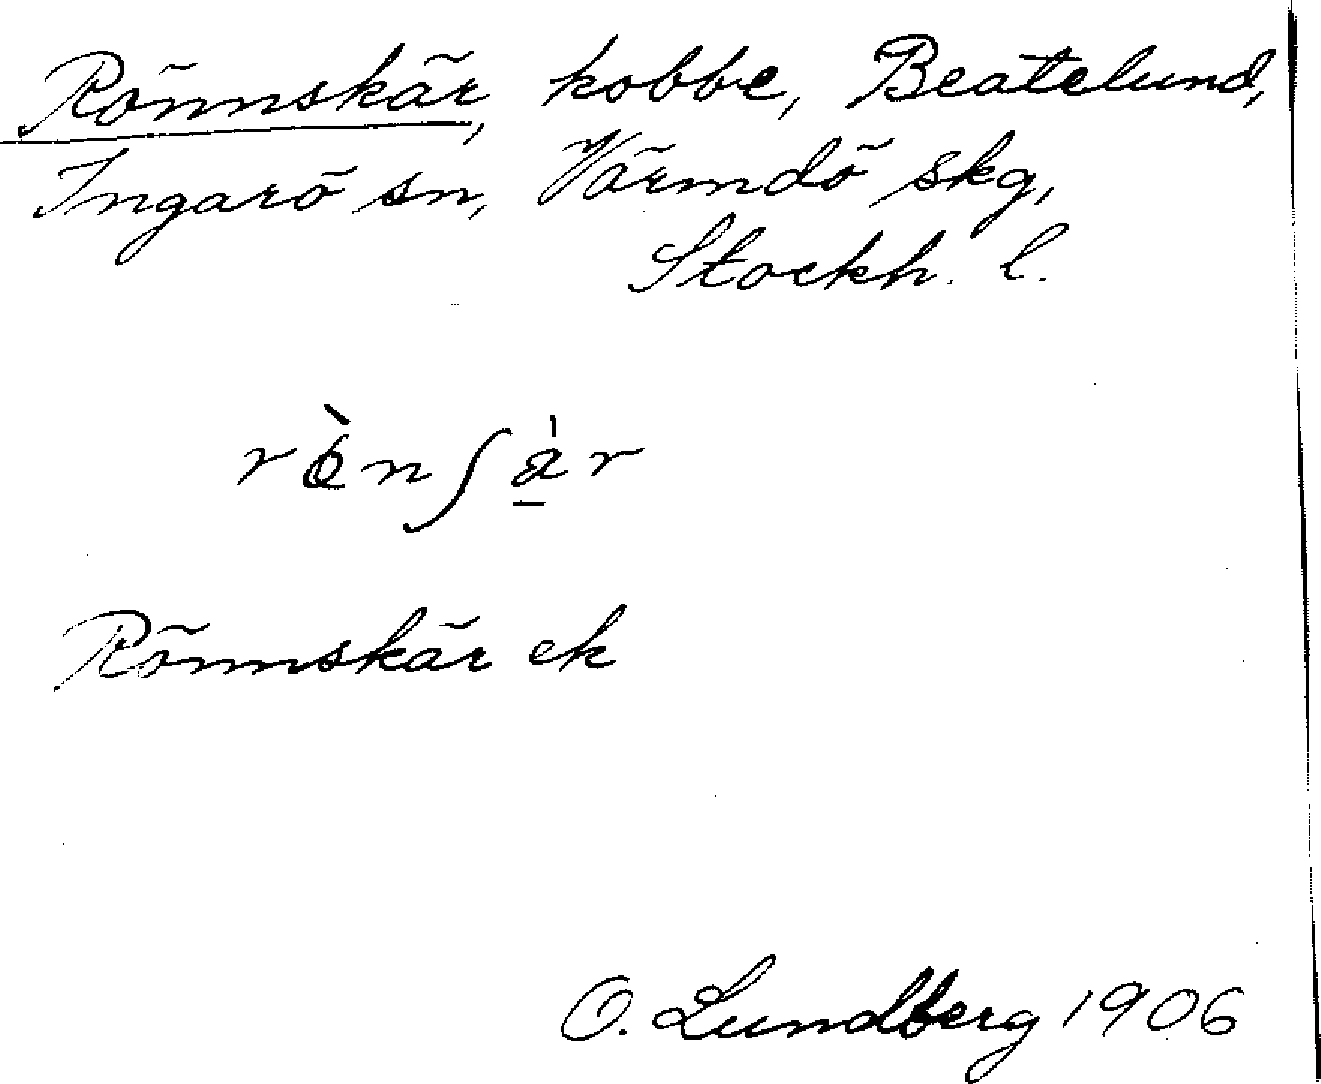 Rönnskär, kobbe, Beatelund,
Ingarö sn, Värmdö skg,
Stockh. l.
rön∫är
Rönnskär ek
O. Lundberg 1906